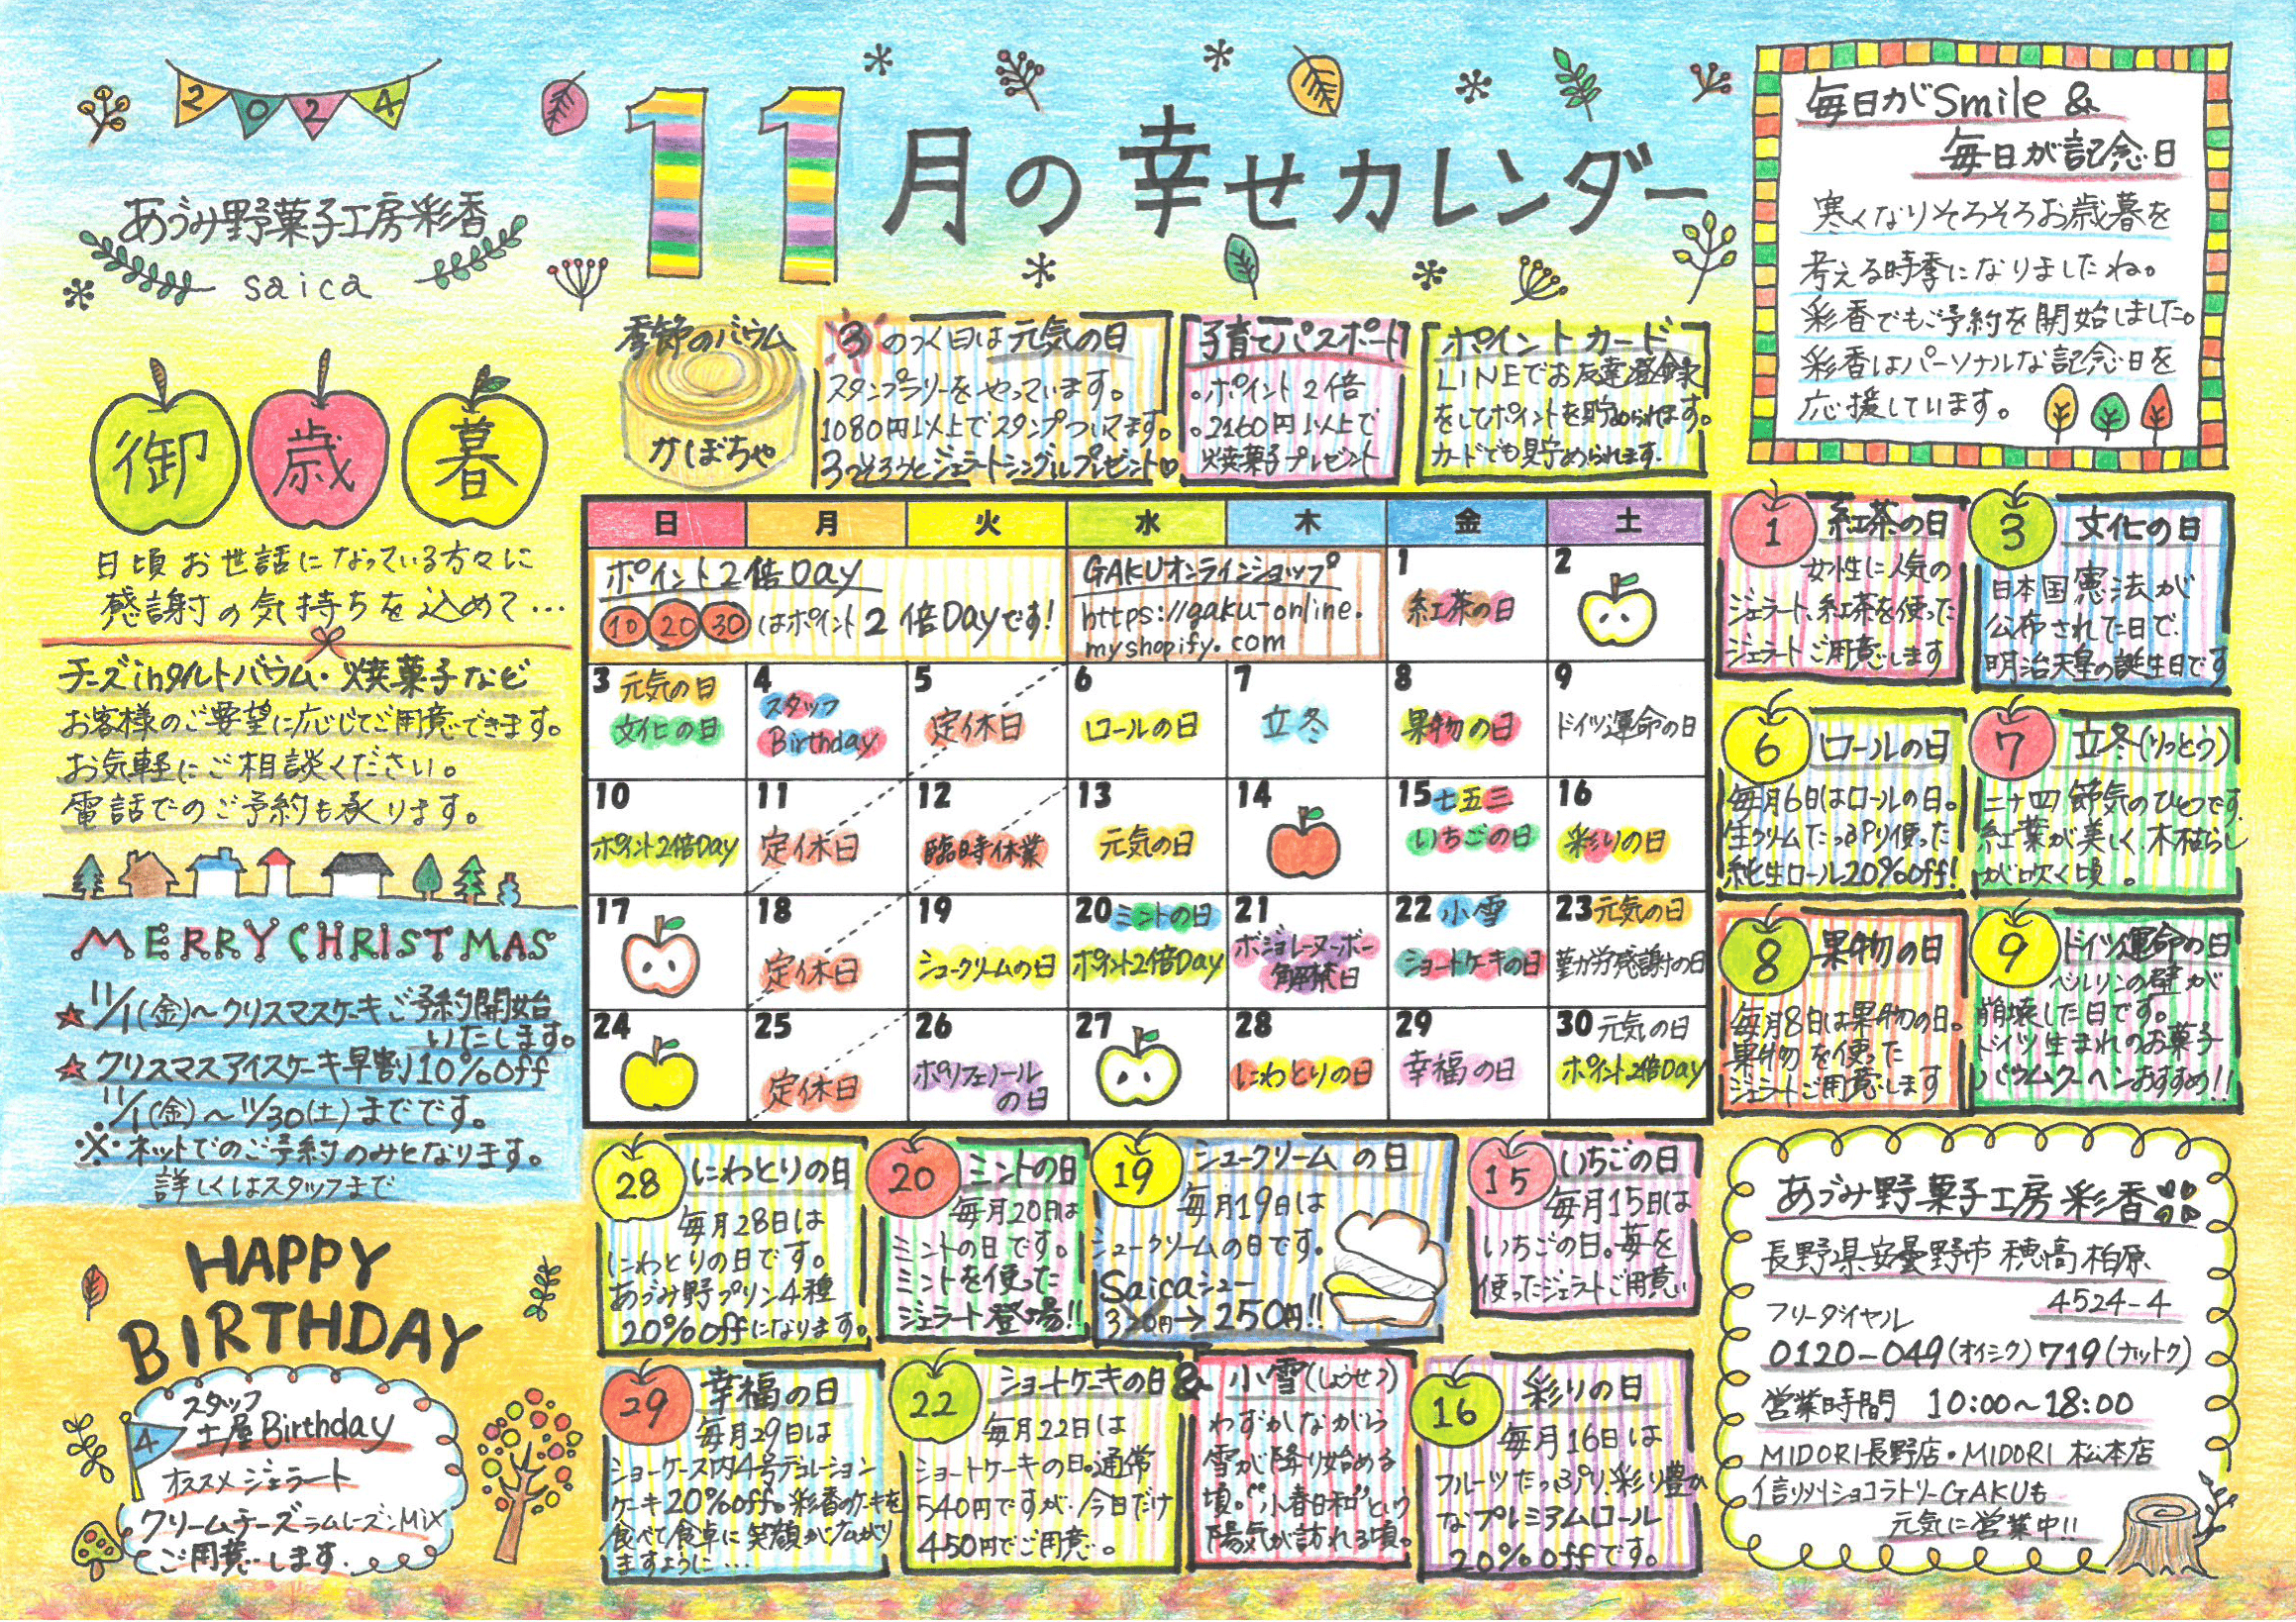 2024
11月の幸せカレンダー
あづみ野菓子工房彩香
saica
毎日がSmile &
毎日が記念日
寒くなりそろそろお歳暮を
考える時季になりましたね。
彩香でもご予約を開始しました。
彩香はパーソナルな記念日を
応援しています。
御歳暮
日頃お世話になっている方々に
感謝の気持ちを込めて…
チーズinタルトバウム・焼菓子など
お客様のご要望に応じてご用意できます。
お気軽にご相談ください。
電話でのご予約も承ります。
MERRY CHRISTMAS
★11/1(金)〜クリスマスケーキご予約開始
いたします。
★クリスマスアイスケーキ早割10%off
11/1(金)〜11/30(土)までです。
※ネットでのご予約のみとなります。
詳しくはスタッフまで
HAPPY
BIRTHDAY
スタッフ
4 土屋Birthday
オススメジェラート
クリームチーズラムレーズンMix
ご用意します.
季節のバウム
かぼちゃ
3のつく日は元気の日
スタンプラリーをやっています。
1080円以上でスタンプついてます。
3つそろうとジェラートシングルプレゼント♡
子育てパスポート
。ポイント2倍
。2160円以上で
焼菓子プレゼント
ポイントカード
LINEでお友達登録
をしてポイントを貯められます。
カードでも貯められます.
日 月 火 水 木 金 土
ポイント2倍Day
10 20 30 はポイント2倍Dayです!
GAKUオンラインショップ
https://gaku-online.
myshopify.com
1 紅茶の日
2
3 元気の日
文化の日
4 スタッフ
Birthday
5 定休日
6 ロールの日
7 立冬
8 果物の日
9 ドイツ運命の日
10 ポイント2倍Day
11 定休日
12 臨時休業
13 元気の日
14
15 七五三
いちごの日
16 彩りの日
17
18 定休日
19 シュークリームの日
20 ミントの日
ポイント2倍Day
21 ボジョレーヌーボー
解禁日
22 小雪
ショートケーキの日
23 元気の日
勤労感謝の日
24
25 定休日
26 ポリフェノール
の日
27
28 にわとりの日
29 幸福の日
30 元気の日
ポイント2倍Day
1 紅茶の日
女性に人気の
ジェラート、紅茶を使った
ジェラートご用意します
3 文化の日
日本国憲法が
公布された日で、
明治天皇の誕生日です
6 ロールの日
毎月6日はロールの日。
生クリームたっぷり使った
純生ロール20%off!
7 立冬(りっとう)
二十四節気のひとつです.
紅葉が美しく木枯らし
が吹く頃。
8 果物の日
毎月8日は果物の日。
果物を使った
ジェラートご用意します
9 ドイツ運命の日
ベルリンの壁が
崩壊した日です。
ドイツ生まれのお菓子
バウムクーヘンおすすめ!!
28 にわとりの日
毎月28日は
にわとりの日です。
あづみ野プリン4種
20%offになります。
20 ミントの日
毎月20日は
ミントの日です。
ミントを使った
ジェラート登場!!
19 シュークリームの日
毎月19日は
シュークリームの日です。
Saicaシュー
→250円!!
15 いちごの日
毎月15日は
いちごの日。苺を
使ったジェラートご用意
29 幸福の日
毎月29日は
ショーケース内4号デコレーション
ケーキ20%off。彩香のケーキを
食べて食卓に笑顔が広がり
ますように…
22 ショートケーキの日&
毎月22日は
ショートケーキの日。通常
540円ですが、今日だけ
450円でご用意。
小雪(しょうせつ)
わずかながら
雪が降り始める
頃。"小春日和"という
陽気が訪れる頃。
16 彩りの日
毎月16日は
フルーツたっぷり、彩り豊か
なプレミアムロール
20%offです。
あづみ野菓子工房彩香
長野県安曇野市穂高柏原
4524-4
フリーダイヤル
0120-049(オイシク)719(ナットク)
営業時間 10:00〜18:00
MIDORI長野店・MIDORI松本店
信州ショコラトリーGAKUも
元気に営業中!!